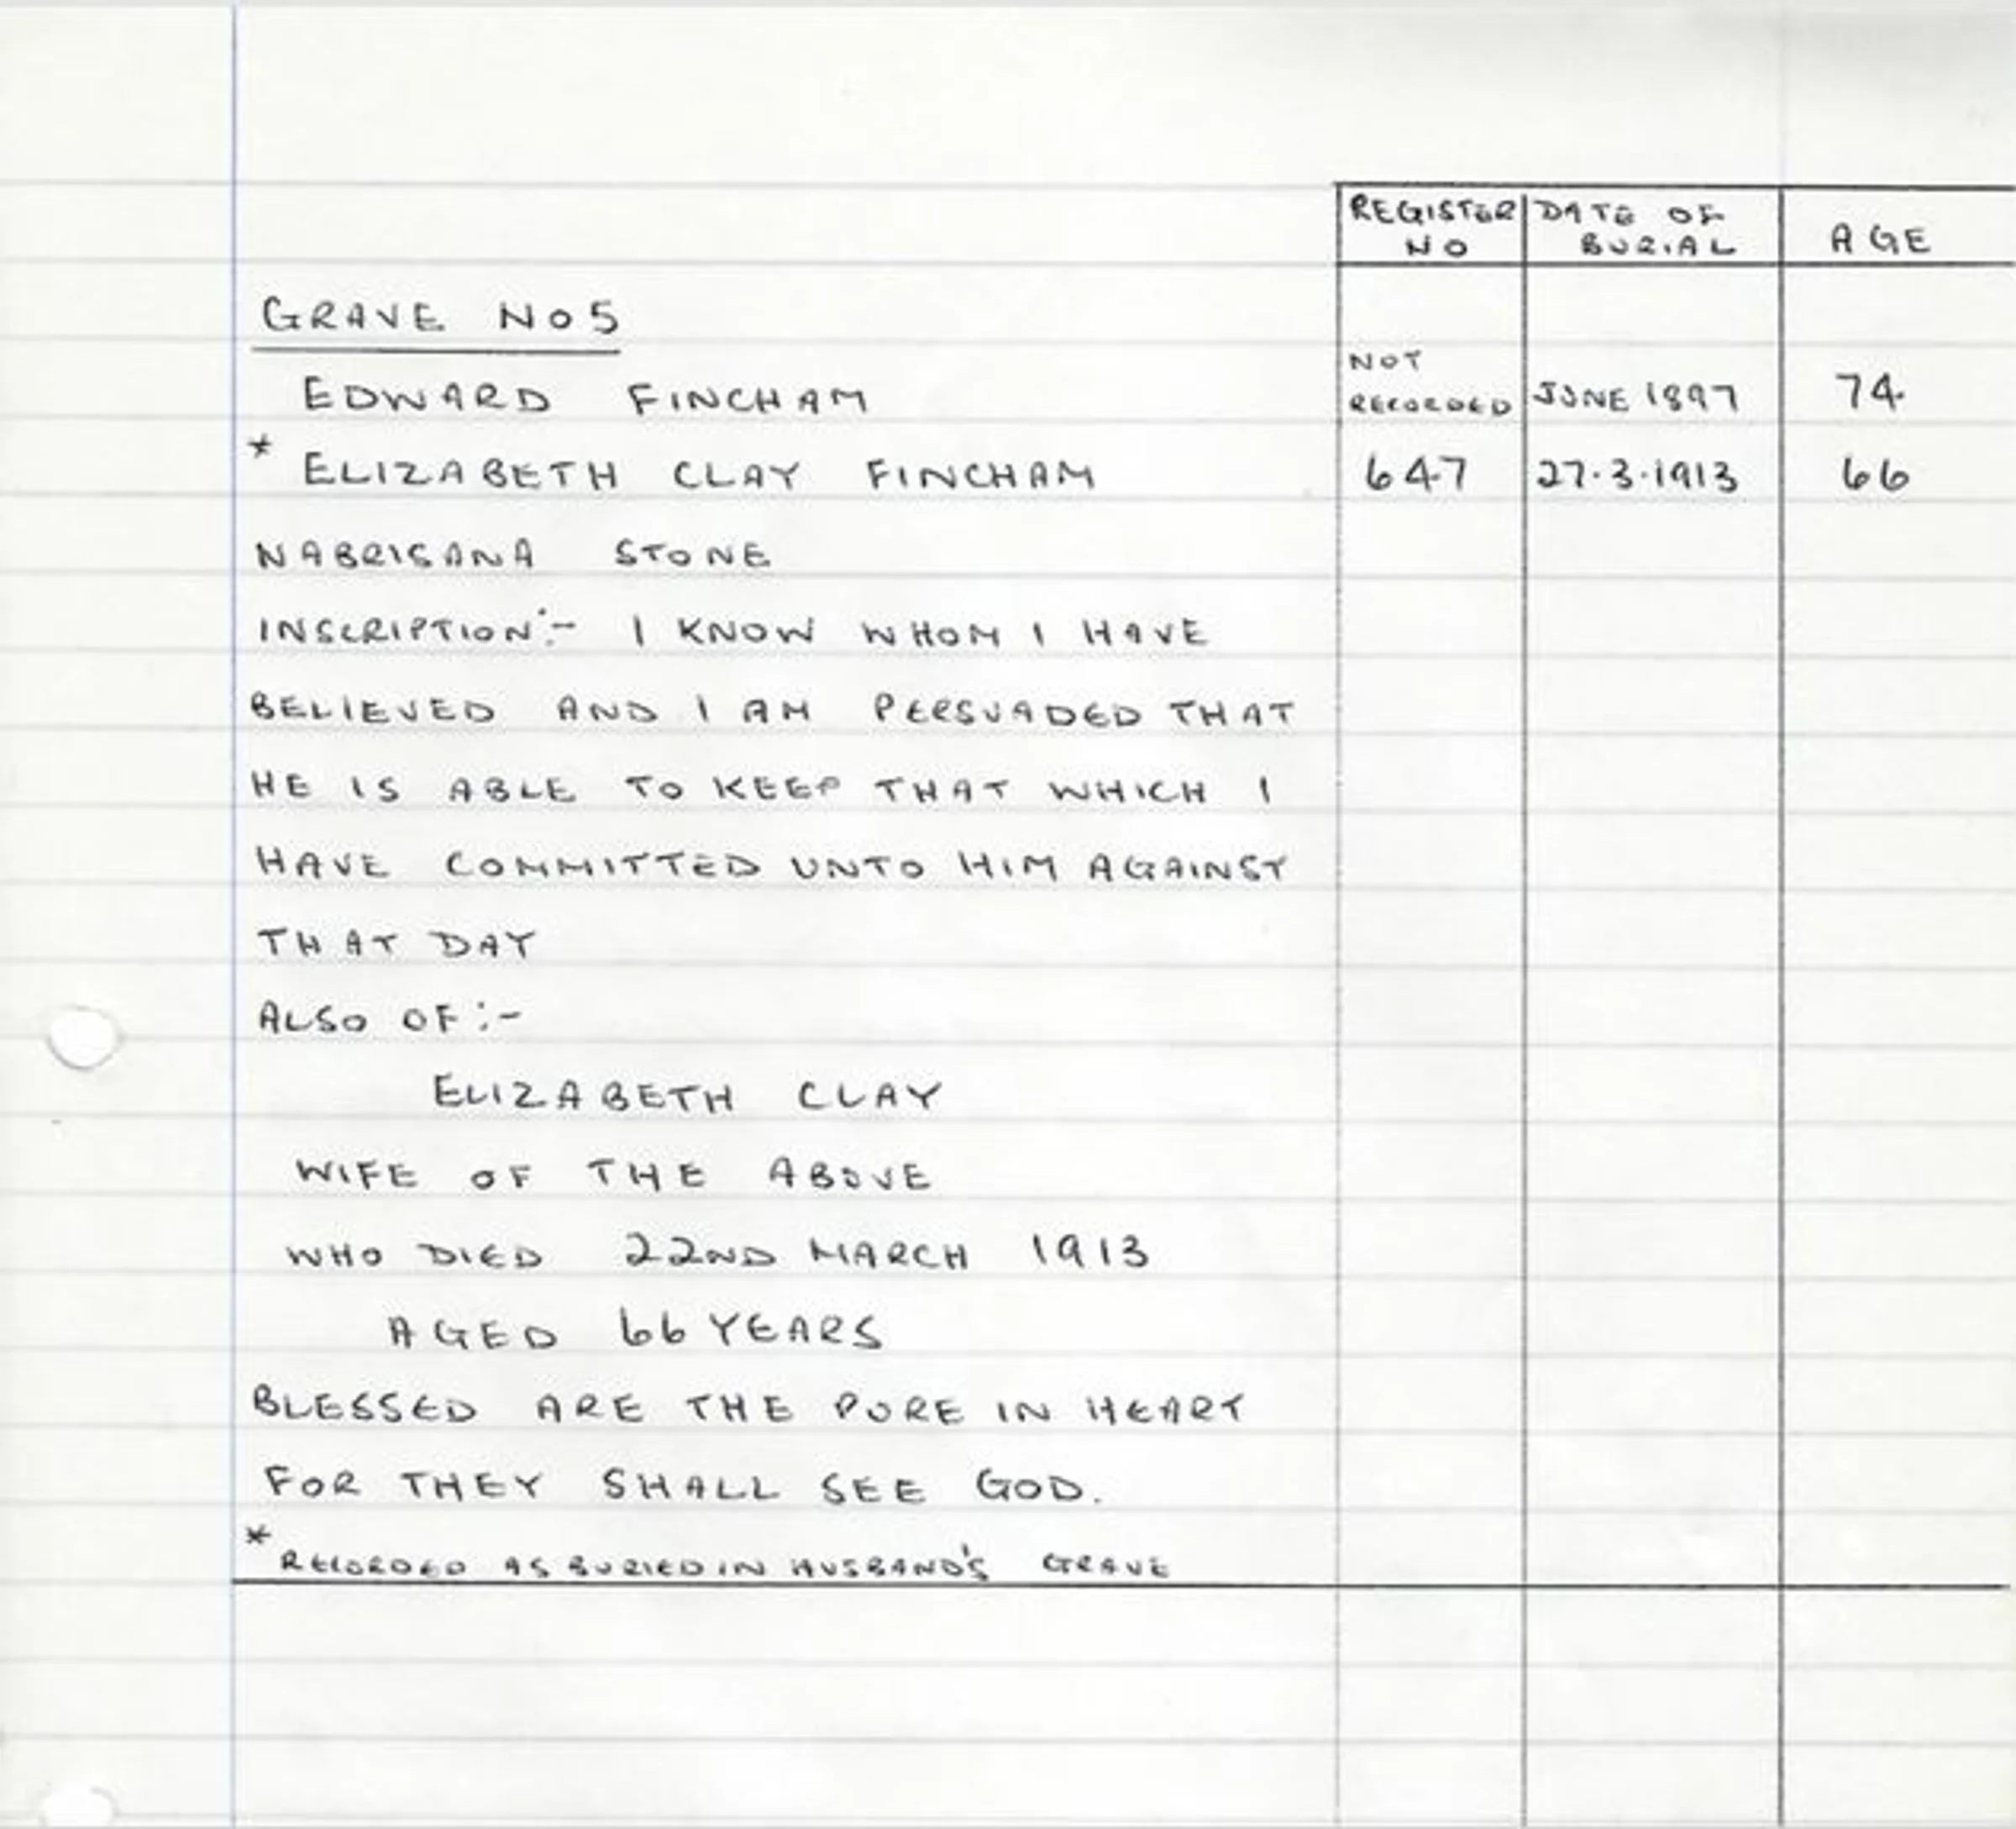 REGISTER NO DATE OF BURIAL AGE
GRAVE No 5
EDWARD FINCHAM NOT RECORDED JUNE 1897 74
* ELIZABETH CLAY FINCHAM 647 27.3.1913 66
NABRISANA STONE
INSCRIPTION:- I KNOW WHOM I HAVE
BELIEVED AND I AM PERSUADED THAT
HE IS ABLE TO KEEP THAT WHICH I
HAVE COMMITTED UNTO HIM AGAINST
THAT DAY
ALSO OF:-
ELIZABETH CLAY
WIFE OF THE ABOVE
WHO DIED 22ND MARCH 1913
AGED 66 YEARS
BLESSED ARE THE PURE IN HEART
FOR THEY SHALL SEE GOD.
* RECORDED AS BURIED IN HUSBAND'S GRAVE